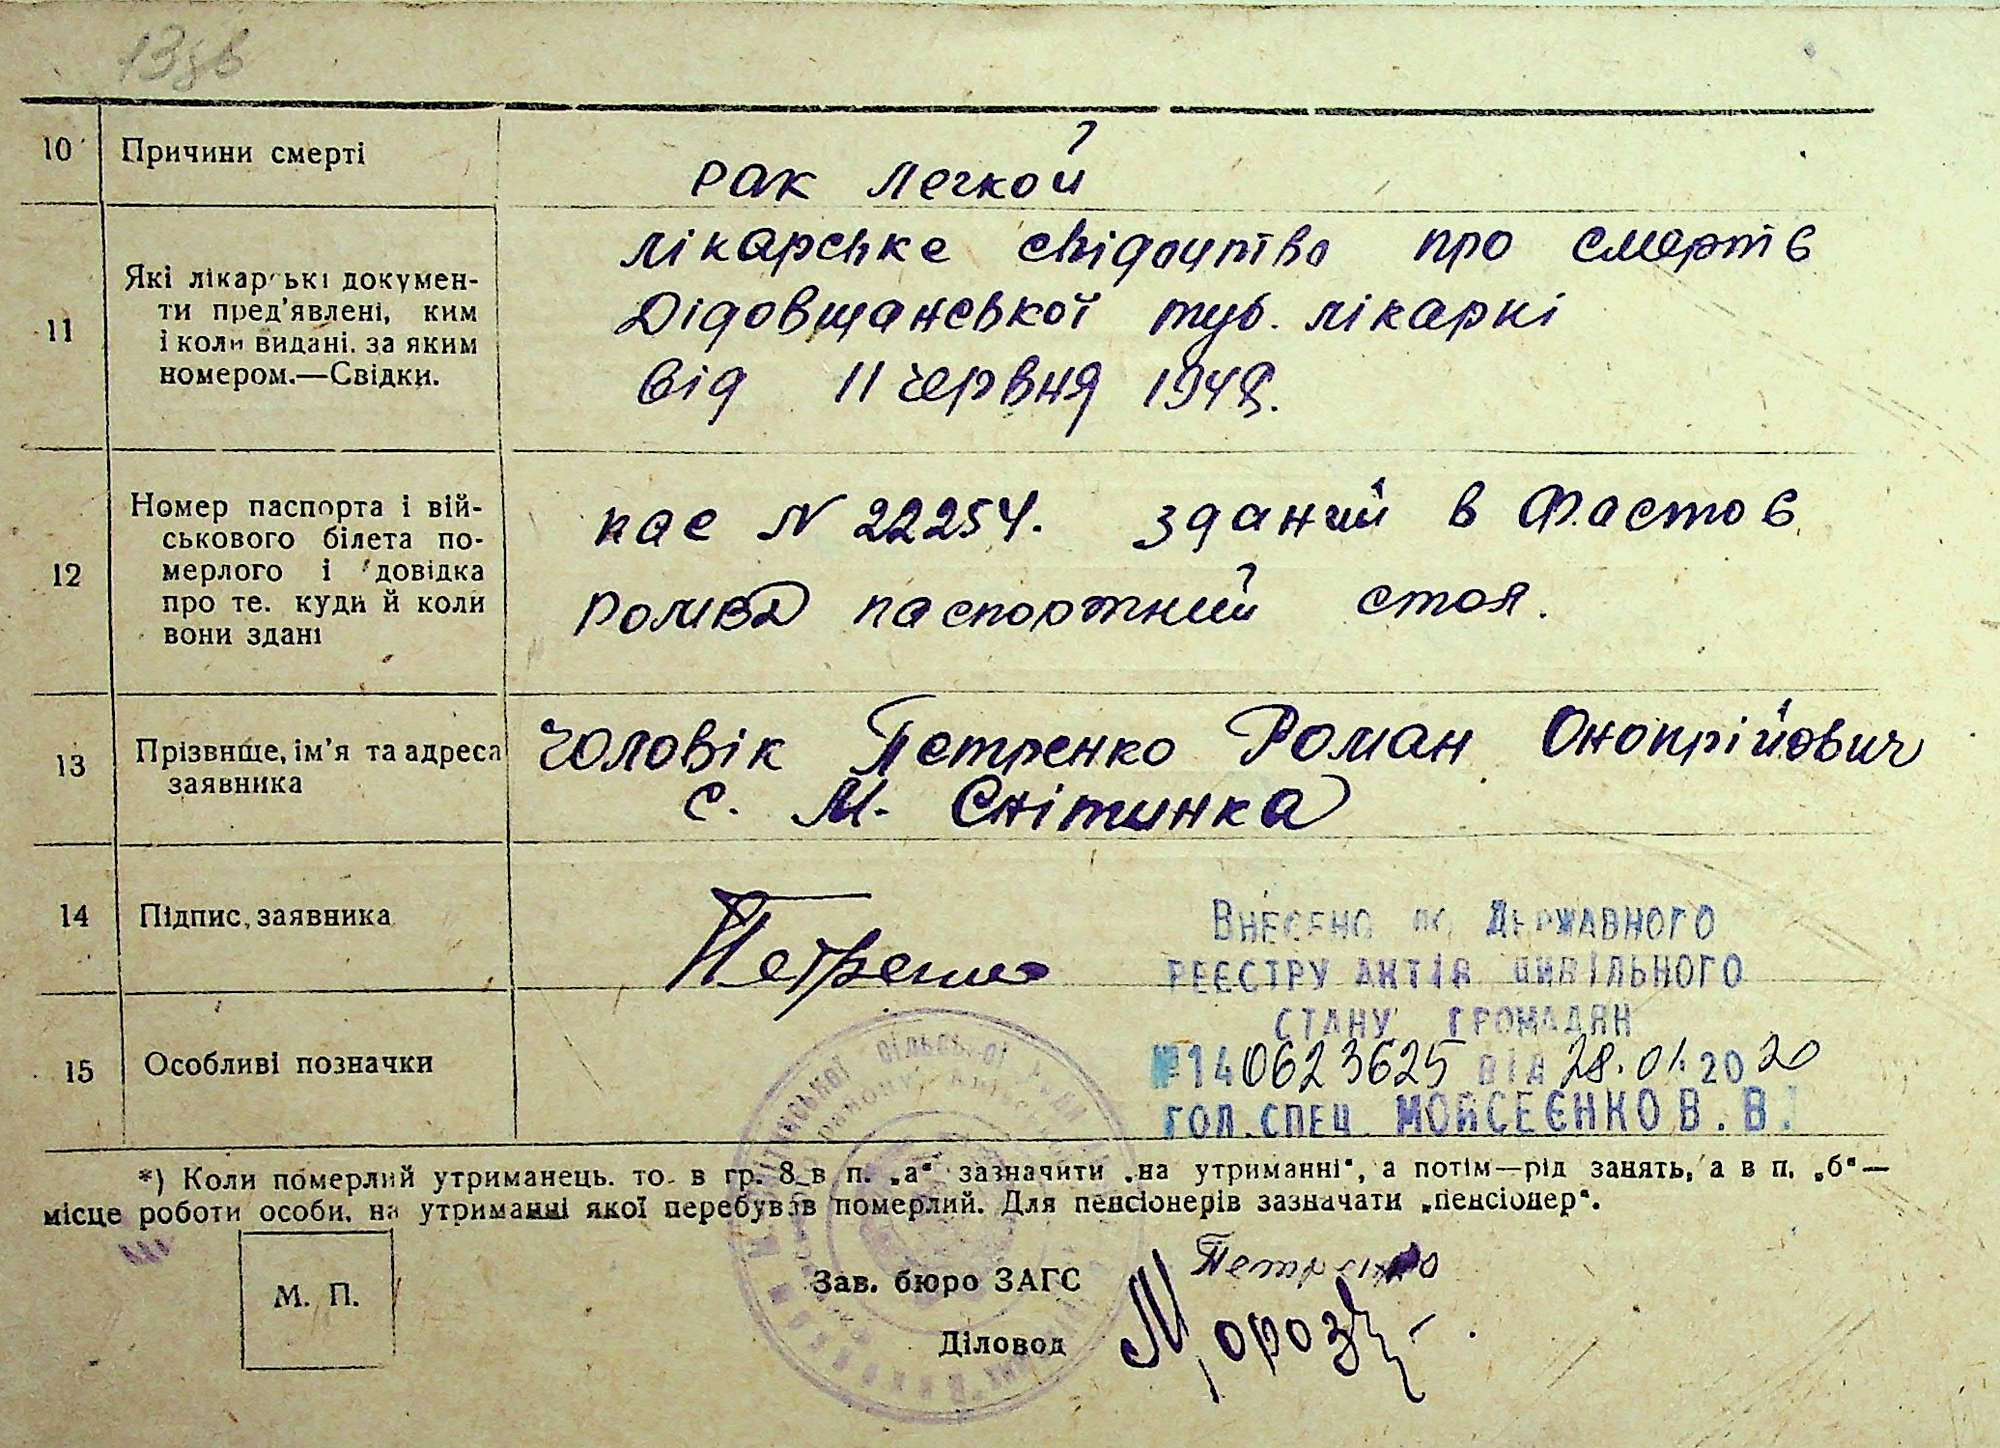 13зв
10 Причини смерті
рак легкой
11 Які лікарські докумен-
ти пред'явлені, ким
і коли видані. за яким
номером.—Свідки.
лікарське свідоцтво про смерть
Дідовщанської туб. лікарні
від 11 червня 1948.
12 Номер паспорта і вій-
ськового білета по-
мерлого і довідка
про те. куди й коли
вони здані
пас N 22254. зданий в Фастов
РОМВД паспортний стол.
13 Прізвище, ім'я та адреса
заявника
чоловік Петренко Роман Онопрійович
с. М. Снітинка
14 Підпис заявника
Петренко
Внесено до Державного
реєстру актів цивільного
стану громадян
№140623625 від 28.01.2020
гол.спец. Мойсеєнко В.В.
15 Особливі позначки
*) Коли померлий утриманець. то в гр. 8 в п. „а“ зазначити „на утриманні“, а потім—рід занять, а в п. „б“—
місце роботи особи, на утриманні якої перебував померлий. Для пенсіонерів зазначати „пенсіонер“.
М. П.
Зав. бюро ЗАГС Петренко
Діловод Мороз